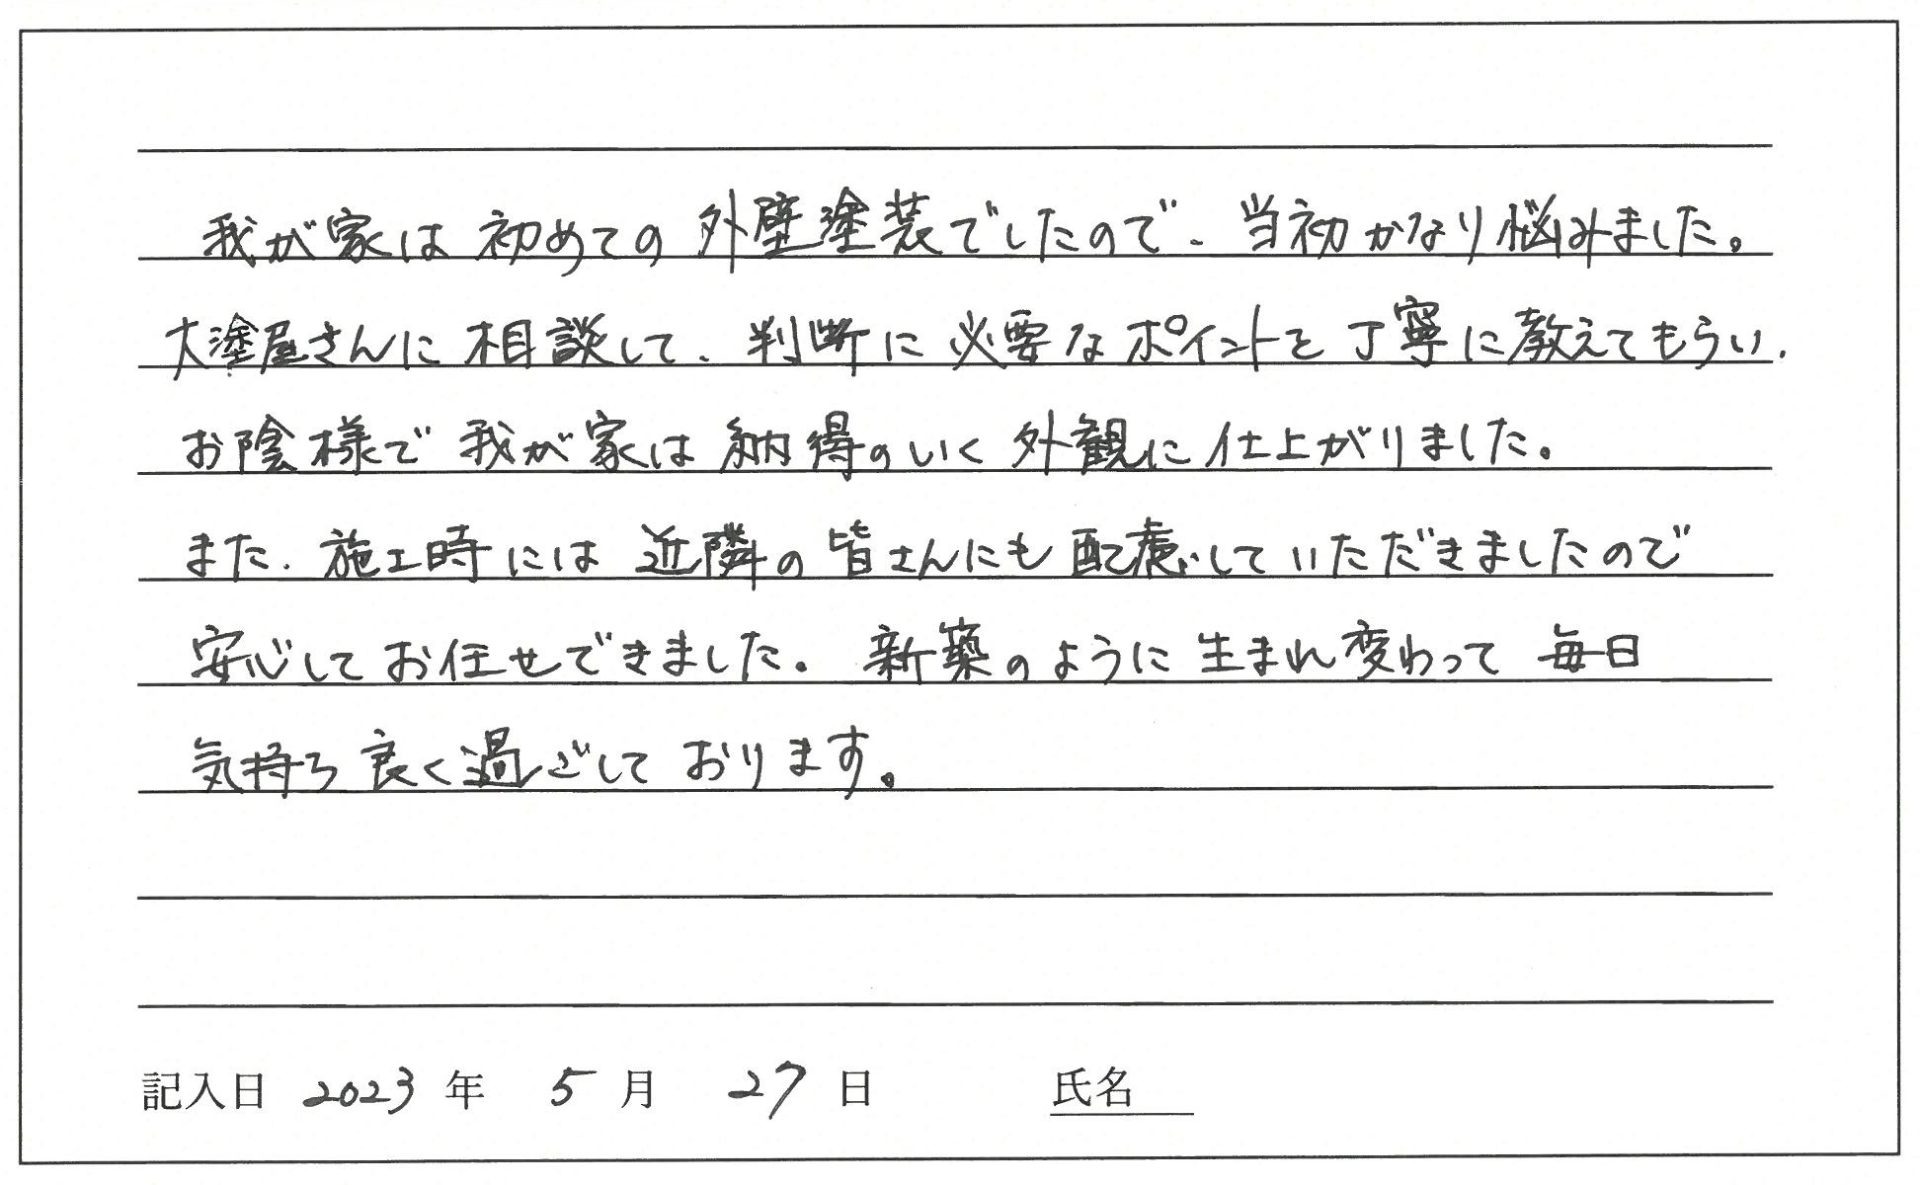 我が家は初めての外壁塗装でしたので、当初かなり悩みました。
大塗屋さんに相談して、判断に必要なポイントを丁寧に教えてもらい、
お陰様で我が家は納得のいく外観に仕上がりました。
また、施工時には近隣の皆さんにも配慮していただきましたので
安心してお任せできました。新築のように生まれ変わって毎日
気持ち良く過ごしております。
記入日 2023 年 5 月 27 日 氏名